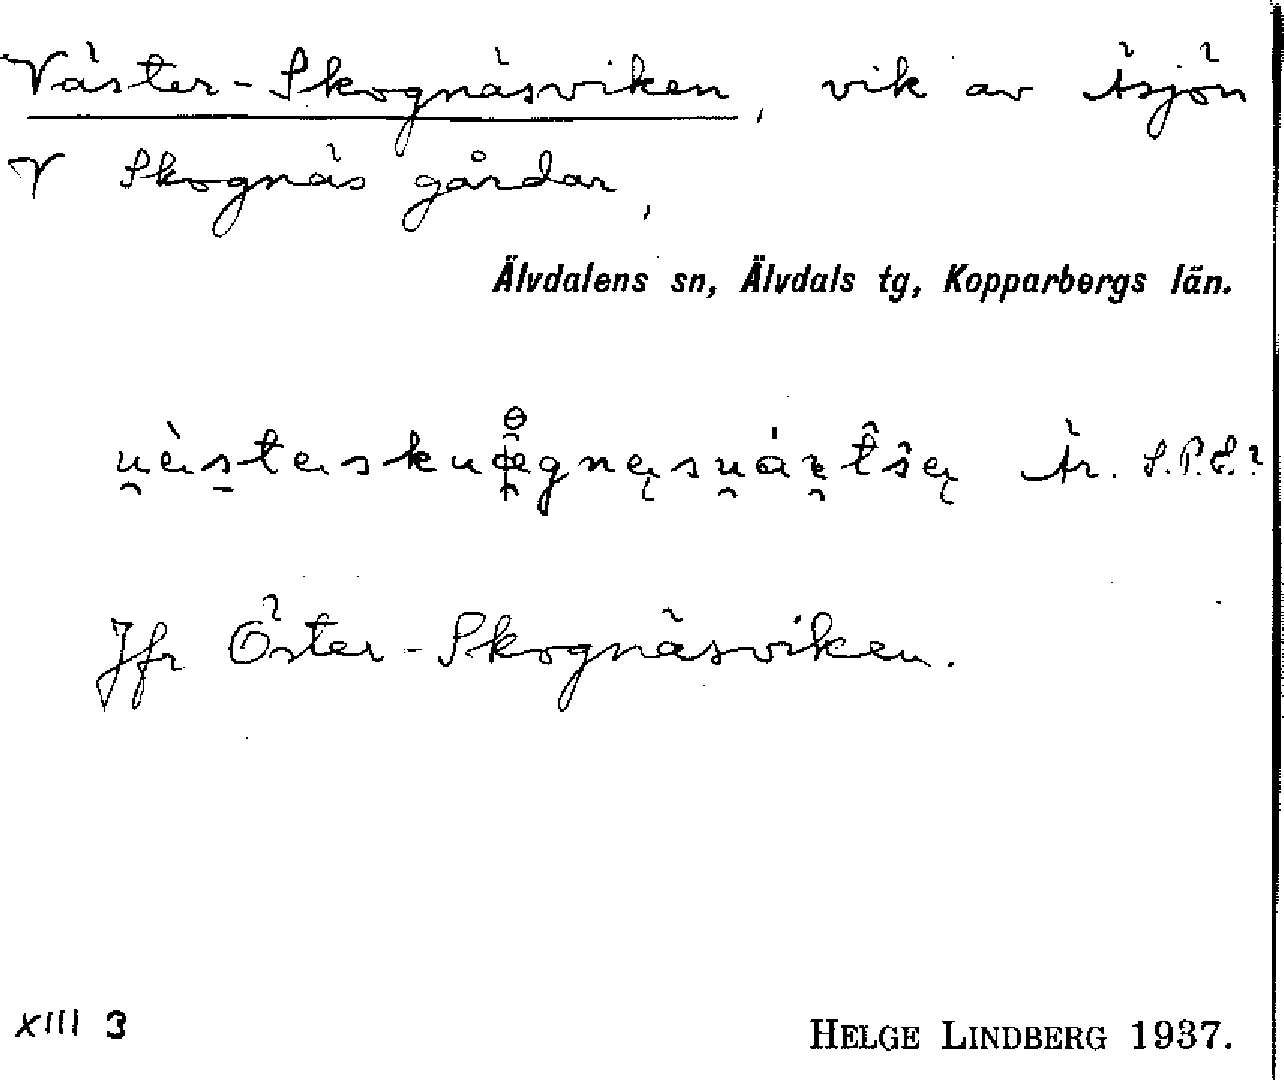 Väster-Skognäsviken, vik av Äsjön
V Skognäs gårdar,
Älvdalens sn, Älvdals tg, Kopparbergs län.
Jfr Öster-Skognäsviken.
XIII 3
HELGE LINDBERG 1937.